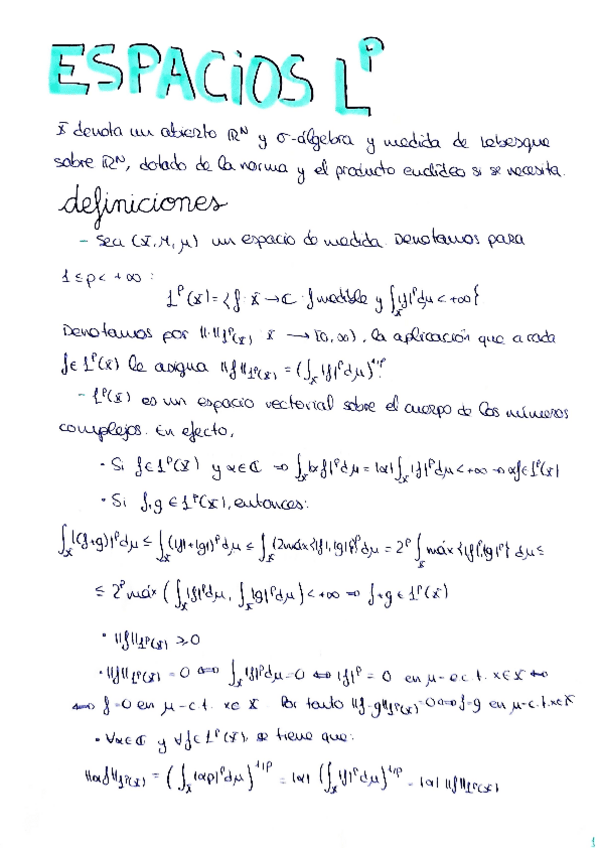 ESPACIOS L^p
X denota un abierto ℝ^N y σ-álgebra y medida de Lebesgue
sobre ℝ^N, dotado de la norma y el producto euclídeo si se necesita.
definiciones
- Sea (X, M, μ) un espacio de medida. Denotamos para
1 ≤ p < +∞ :
ℒ^p(X) = {f: X → ℂ : f medible y ∫_X |f|^p dμ < +∞}
Denotamos por ||·||_ℒ^p(X) : X → [0, ∞), la aplicación que a cada
f ∈ ℒ^p(X) le asigna ||f||_ℒ^p(X) = (∫_X |f|^p dμ)^1/p.
- ℒ^p(X) es un espacio vectorial sobre el cuerpo de los números
complejos. En efecto,
· Si f ∈ ℒ^p(X) y α ∈ ℂ ⇒ ∫_X |αf|^p dμ = |α| ∫_X |f|^p dμ < +∞ ⇒ αf ∈ ℒ^p(X)
· Si f, g ∈ ℒ^p(X), entonces:
∫_X |(f+g)|^p dμ ≤ ∫_X (|f|+|g|)^p dμ ≤ ∫_X (2máx{|f|, |g|})^p dμ = 2^p ∫_X máx{|f|^p, |g|^p} dμ ≤
≤ 2^p máx (∫_X |f|^p dμ, ∫_X |g|^p dμ) < +∞ ⇒ f+g ∈ ℒ^p(X)
· ||f||_ℒ^p(X) ≥ 0
· ||f||_ℒ^p(X) = 0 ⇔ ∫_X |f|^p dμ = 0 ⇔ |f|^p = 0 en μ-c.t. x ∈ X ⇔
⇔ f = 0 en μ-c.t. x ∈ X. Por tanto ||f-g||_ℒ^p(X) = 0 ⇔ f = g en μ-c.t. x ∈ X
· ∀α ∈ ℂ y ∀f ∈ ℒ^p(X), se tiene que:
||αf||_ℒ^p(X) = (∫_X |αf|^p dμ)^1/p = |α| (∫_X |f|^p dμ)^1/p = |α| ||f||_ℒ^p(X)
1